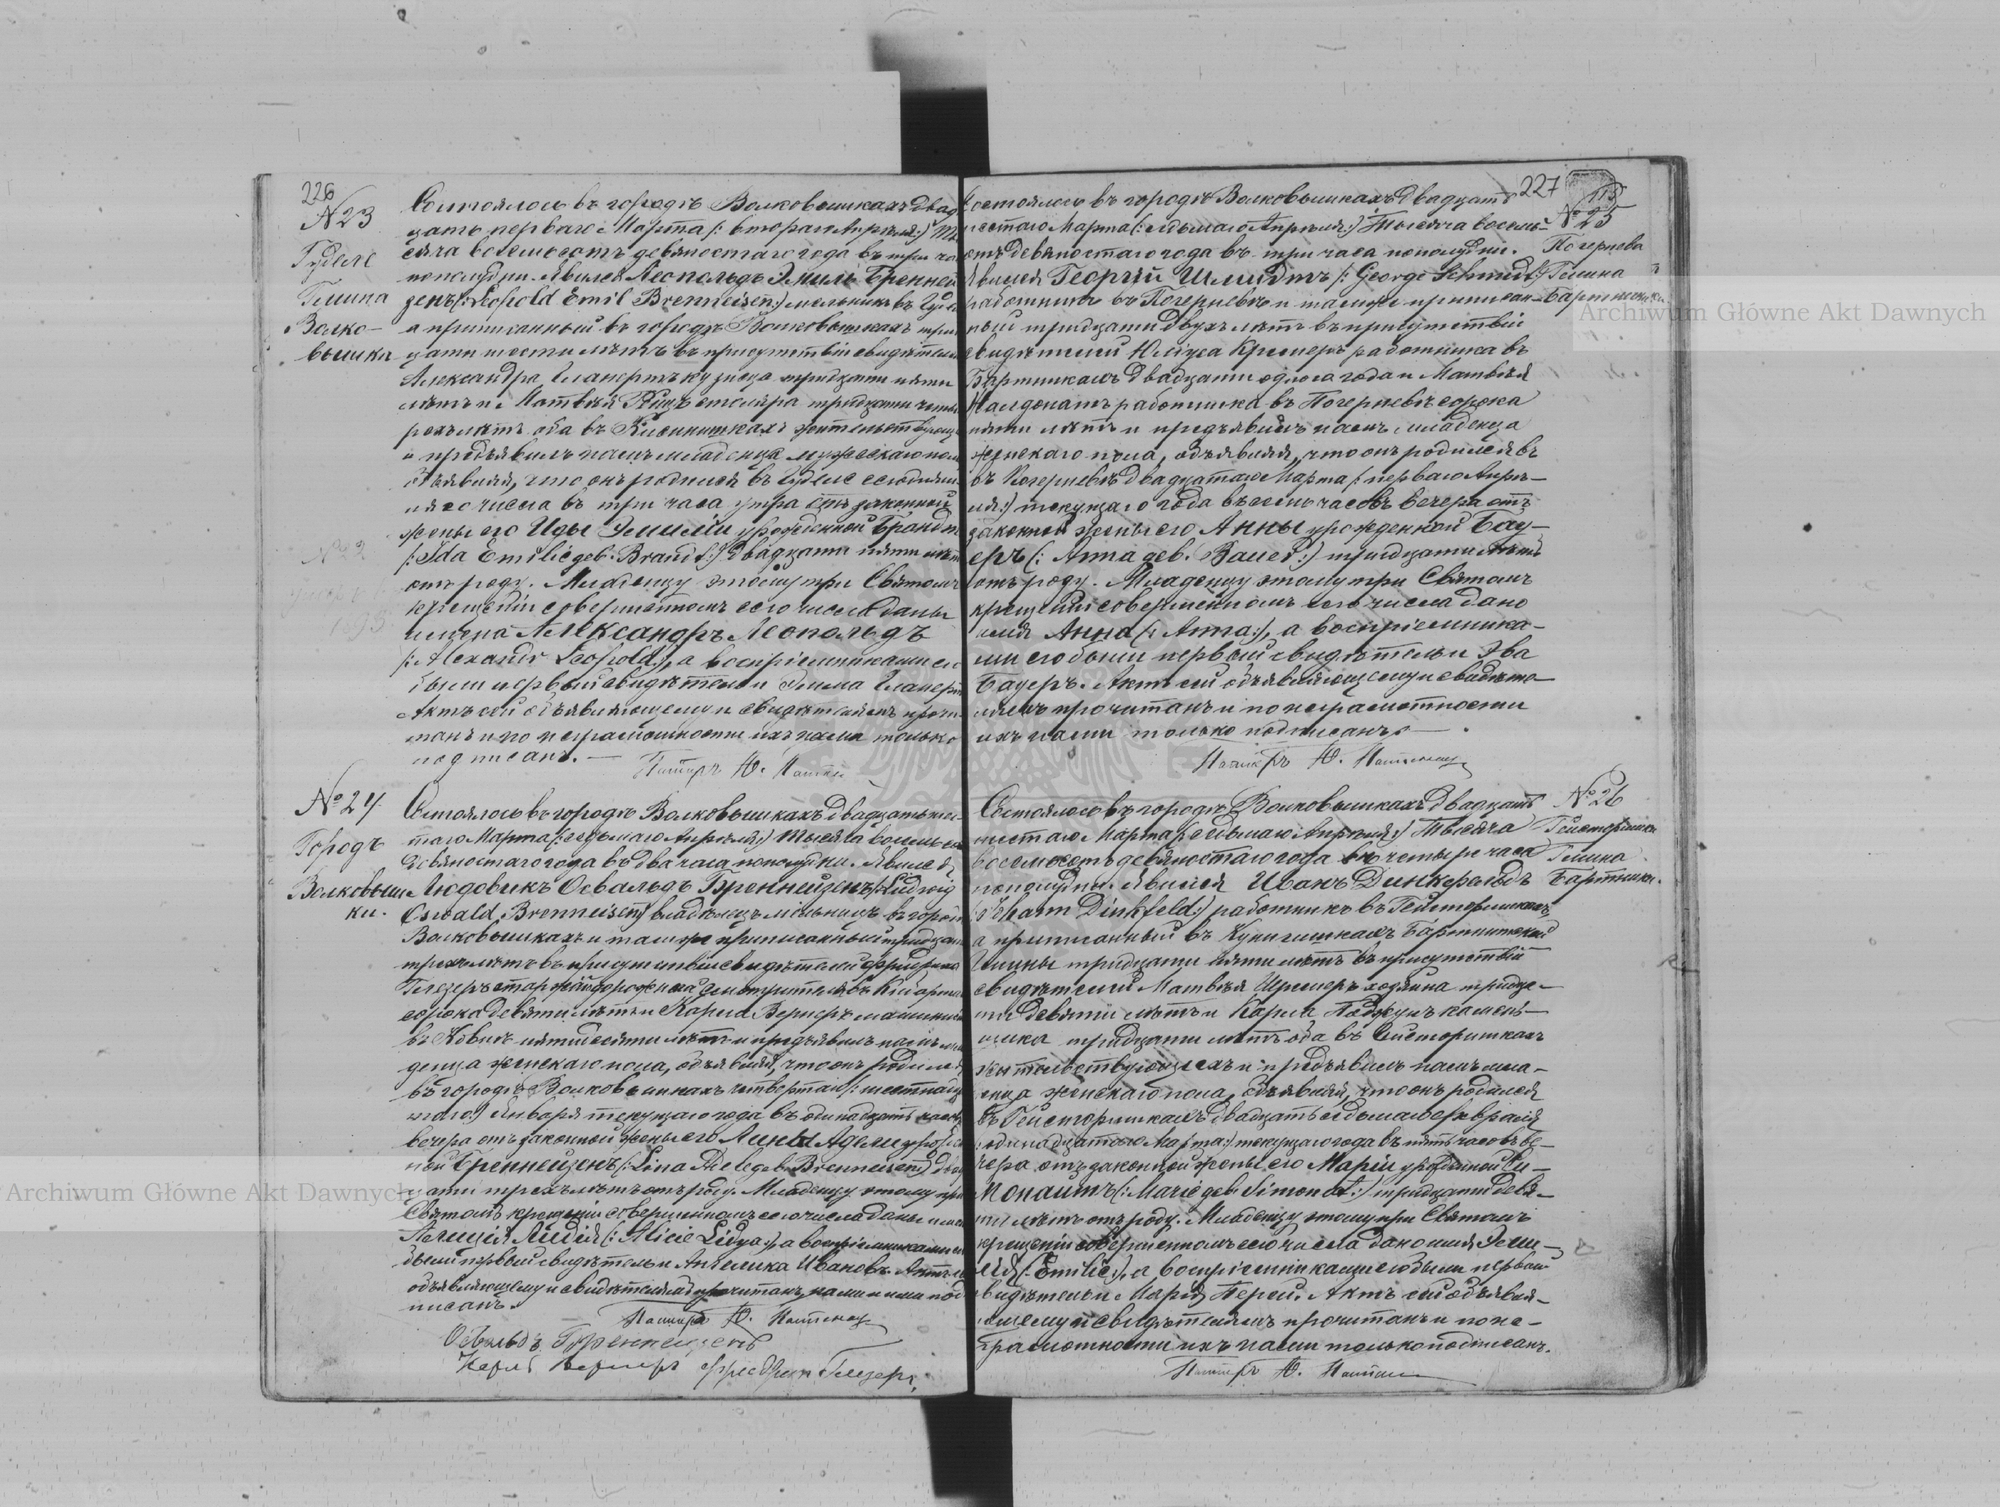 226
№ 23
Гуделе
Гмина
Волко-
вышки
Состоялось въ городѣ Волковышкахъ двад
цать перваго Марта (: втораго Апрѣля:) Ты
сяча восемьсотъ девяностаго года въ три часа
пополудни. Явился Леопольдъ Эмилъ Бренней
зенъ (: Leopold Emil Brenneisen:) мельникъ въ Гуде
а приписанный въ городѣ Волковышкахъ трид
цати шести лѣтъ въ присутствіи свидѣтелей
Александра кузнеца тридцати пяти
лѣтъ и Матвѣя столяра тридцати четы
рехъ лѣтъ оба въ жительствующ
и предъявилъ намъ младенца мужескаго пола
объявляя, что онъ родился въ Гуделе сегодняш
няго числа въ три часа утра отъ законной
жены его Иды Эмиліи урожденной Брандтъ
(: Ida Emilie дев. Brandt:) двадцати пяти лѣтъ
отъ роду. Младенцу этому при Святомъ
крещеніи совершенномъ сего числа даны
имена Александръ Леопольдъ
(: Alexandr Leopold:), а воспріемниками его
были первый свидѣтель и
Актъ сей объявляющему и свидѣтелямъ прочи
танъ и по неграмотности ихъ нами только
подписанъ. —
Пасторъ Ю.
№ 24
Городъ
Волковыш
ки.
Состоялось въ городѣ Волковышкахъ двадцать шес
таго Марта (: седьмаго Апрѣля:) Тысяча восемьсотъ
девяностаго года въ два часа пополудни. Явился
Людовикъ Освальдъ Бреннейзенъ (: Ludwig
Oswald Brenneisen:) владѣлецъ мельницъ въ городѣ
Волковышкахъ и тамже приписанный тридцати
трехъ лѣтъ въ присутствіи свидѣтелей Фридриха
Глезеръ
сорока девяти лѣтъ и Карла Вернеръ машиниста
въ Ковнѣ пятидесяти лѣтъ и предъявилъ намъ мла
денца женскаго пола, объявляя, что онъ родился
въ городѣ Волковышкахъ четвертаго (: шестнадц
атаго) Января текущаго года въ одинадцать часовъ
вечера отъ законной жены его Лины Адели урожден
ной Бреннейзенъ (: Lina Adele дев. Brenneisen:) двад
цати трехъ лѣтъ отъ роду. Младенцу этому при
Святомъ крещеніи совершенномъ сего числа даны имена
Алиція Лидія (: Alicie Lidya:), а воспріемниками его
были первый свидѣтель и Ангелика Ивановъ. Актъ сей
объявляющему и свидѣтелямъ прочитанъ нами и ими под
писанъ.
Пасторъ Ю.
Освальдъ Бреннейзенъ
Карлъ Вернеръ Фридрихъ Глезеръ.
227
115
№ 25
Погернева
Гмина
Бартники
Состоялось въ городѣ Волковышкахъ двадцать
шестаго Марта (: седьмаго Апрѣля:) Тысяча восемь
сотъ девяностаго года въ три часа пополудни.
Явился Георгій Шмидтъ (: George Schmidt:)
работникъ въ Погерневѣ и тамже приписан-
ный тридцати двухъ лѣтъ въ присутствіи
свидѣтелей Юлиуса Кремеръ работника въ
Бартникахъ двадцати одного года и Матвѣя
работника въ Погерневѣ сорока
пяти лѣтъ и предъявилъ намъ младенца
женскаго пола, объявляя, что онъ родился въ
въ Погерневѣ двадцатаго Марта (: перваго Апрѣ-
ля:) текущаго года въ семь часовъ вечера отъ
законной жены его Анны урожденной Бау-
еръ (: Anna дев. Bauer:) тридцати лѣтъ
отъ роду. Младенцу этому при Святомъ
крещеніи совершенномъ сего числа дано
имя Анна (: Anna:), а воспріемника-
ми его были первый свидѣтель и Эва
Бауеръ. Актъ сей объявляющему и свидѣте-
лямъ прочитанъ и по неграмотности
ихъ нами только подписанъ. —
Пасторъ Ю.
№ 26
Гейсторишки
Гмина
Бартники.
Состоялось въ городѣ Волковышкахъ двадцать
шестаго Марта (: седьмаго Апрѣля:) Тысяча
восемьсотъ девяностаго года въ четыре часа
пополудни. Явился Иванъ Динкфельдъ
(: Johann Dinkfeld:) работникъ въ Гейсторишкахъ
а приписанный въ Кунигишкахъ Бартникской
Гмины тридцати пяти лѣтъ въ присутствіи
свидѣтелей Матвѣя Шремеръ хозяина тридца-
ти девяти лѣтъ и Карла камень-
щика тридцати лѣтъ оба въ Гейсторишкахъ
жительствующихъ и предъявилъ намъ мла-
денца женскаго пола, объявляя, что онъ родился
въ Гейсторишкахъ двадцать седьмаго Февраля
(: одинадцатаго Марта:) текущаго года въ пять часовъ ве-
чера отъ законной жены его Маріи урожденной Си-
монайтъ (: Marie дев. Simonat:) тридцати девя-
ти лѣтъ отъ роду. Младенцу этому при Святомъ
крещеніи совершенномъ сего числа дано имя Эми-
лія (: Emilie:), а воспріемниками его были первый
свидѣтель и Марія Перей. Актъ сей объявля-
ющему и свидѣтелямъ прочитанъ и по не-
грамотности ихъ нами только подписанъ.
Пасторъ Ю.
Archiwum Główne Akt Dawnych
Archiwum Główne Akt Dawnych